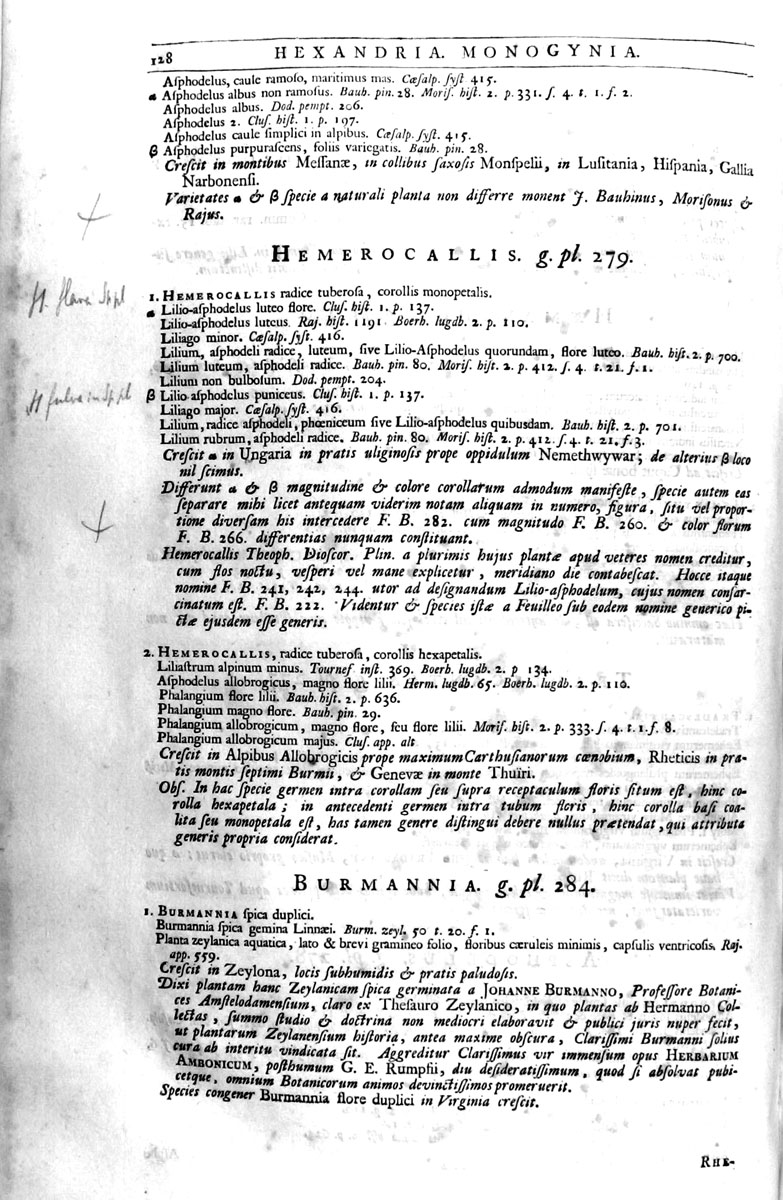 128 HEXANDRIA. MONOGYNIA.
Aſphodelus, caule ramoſo, maritimus mas. Cæſalp. ſyſt 415.
α Aſphodelus albus non ramoſus. Bauh. pin. 28. Moriſ. hiſt. 2. p. 331. ſ. 4. t. 1. f. 2.
Aſphodelus albus. Dod. pempt. 206.
Aſphodelus 2. Cluſ. hiſt. 1. p. 197.
Aſphodelus caule ſimplici in alpibus. Cæſalp. ſyſt. 415.
β Aſphodelus purpuraſcens, foliis variegatis. Bauh. pin. 28.
Creſcit in montibus Meſſanæ, in collibus ſaxoſis Monſpelii, in Luſitania, Hiſpania, Gallia
Narbonenſi.
Varietates α & β ſpecie a naturali planta non differre monent J. Bauhinus, Moriſonus &
Rajus.
HEMEROCALLIS. g. pl. 279.
1. HEMEROCALLIS radice tuberoſa, corollis monopetalis.
α Lilio-aſphodelus luteo flore. Cluſ. hiſt. 1. p. 137.
H. flava Sp pl
Lilio-aſphodelus luteus. Raj. hiſt. 1191. Boerh. lugdb. 2. p. 110.
Liliago minor. Cæſalp. ſyſt. 416.
Lilium, aſphodeli radice, luteum, ſive Lilio-Aſphodelus quorundam, flore luteo. Bauh. hiſt. 2. p. 700.
Lilium luteum, aſphodeli radice. Bauh. pin. 80. Moriſ. hiſt. 2. p. 412. ſ. 4. t. 21. f. 1.
Lilium non bulboſum. Dod. pempt. 204.
β Lilio aſphodelus puniceus. Cluſ. hiſt. 1. p. 137.
H fulva in Sp pl
Liliago major. Cæſalp. ſyſt. 416.
Lilium, radice aſphodeli, phœniceum ſive Lilio-aſphodelus quibusdam. Bauh. hiſt. 2. p. 701.
Lilium rubrum, aſphodeli radice. Bauh. pin. 80. Moriſ. hiſt. 2. p. 412. ſ. 4. t. 21. f. 3.
Creſcit α in Ungaria in pratis uliginoſis prope oppidulum Nemethwywar; de alterius β loco
nil ſcimus.
Differunt α & β magnitudine & colore corollarum admodum manifeſte, ſpecie autem eas
ſeparare mihi licet antequam viderim notam aliquam in numero, figura, ſitu vel propor-
tione diverſam his intercedere F. B. 282. cum magnitudo F. B. 260. & color florum
F. B. 266. differentias nunquam conſtituant.
Hemerocallis Theoph. Dioſcor. Plin. a plurimis hujus plantæ apud veteres nomen creditur,
cum flos noctu, veſperi vel mane explicetur, meridiano die contabeſcat. Hocce itaque
nomine F. B. 241, 242, 244. utor ad deſignandum Lilio-aſphodelum, cujus nomen conſar-
cinatum eſt. F. B. 222. Videntur & ſpecies iſtæ a Feuilleo ſub eodem nomine generico pi-
ctæ ejusdem eſſe generis.
2. HEMEROCALLIS, radice tuberoſa, corollis hexapetalis.
Liliaſtrum alpinum minus. Tournef inſt. 369. Boerh. lugdb. 2. p 134.
Aſphodelus allobrogicus, magno flore lilii. Herm. lugdb. 65. Boerh. lugdb. 2. p. 110.
Phalangium flore lilii. Bauh. hiſt. 2. p. 636.
Phalangium magno flore. Bauh. pin. 29.
Phalangium allobrogicum, magno flore, ſeu flore lilii. Moriſ. hiſt. 2. p. 333. ſ. 4. t. 1. f. 8.
Phalangium allobrogicum majus. Cluſ. app. alt
Creſcit in Alpibus Allobrogicis prope maximum Carthuſianorum cœnobium, Rheticis in pra-
tis montis ſeptimi Burmii, & Genevæ in monte Thuiri.
Obſ. In hac ſpecie germen intra corollam ſeu ſupra receptaculum floris ſitum eſt, hinc co-
rolla hexapetala; in antecedenti germen intra tubum floris, hinc corolla baſi coa-
lita ſeu monopetala eſt, has tamen genere diſtingui debere nullus prætendat, qui attributa
generis propria conſiderat.
BURMANNIA. g. pl. 284.
1. BURMANNIA ſpica duplici.
Burmannia ſpica gemina Linnæi. Burm. zeyl. 50 t. 20. f. 1.
Planta zeylanica aquatica, lato & brevi gramineo folio, floribus cæruleis minimis, capſulis ventricoſis. Raj.
app. 559.
Creſcit in Zeylona, locis ſubhumidis & pratis paludoſis.
Dixi plantam hanc Zeylanicam ſpica germinata a JOHANNE BURMANNO, Profeſſore Botani-
ces Amſtelodamenſium, claro ex Theſauro Zeylanico, in quo plantas ab Hermanno Col-
lectas, ſummo ſtudio & doctrina non mediocri elaboravit & publici juris nuper fecit,
ut plantarum Zeylanenſium hiſtoria, antea maxime obſcura, Clariſſimi Burmanni ſolius
cura ab interitu vindicata ſit. Aggreditur Clariſſimus vir immenſum opus HERBARIUM
AMBONICUM, poſthumum G. E. Rumpfii, diu deſideratiſſimum, quod ſi abſolvat pubi-
cetque, omnium Botanicorum animos devinctiſſimos promeruerit.
Species congener Burmannia flore duplici in Virginia creſcit.
RHE-